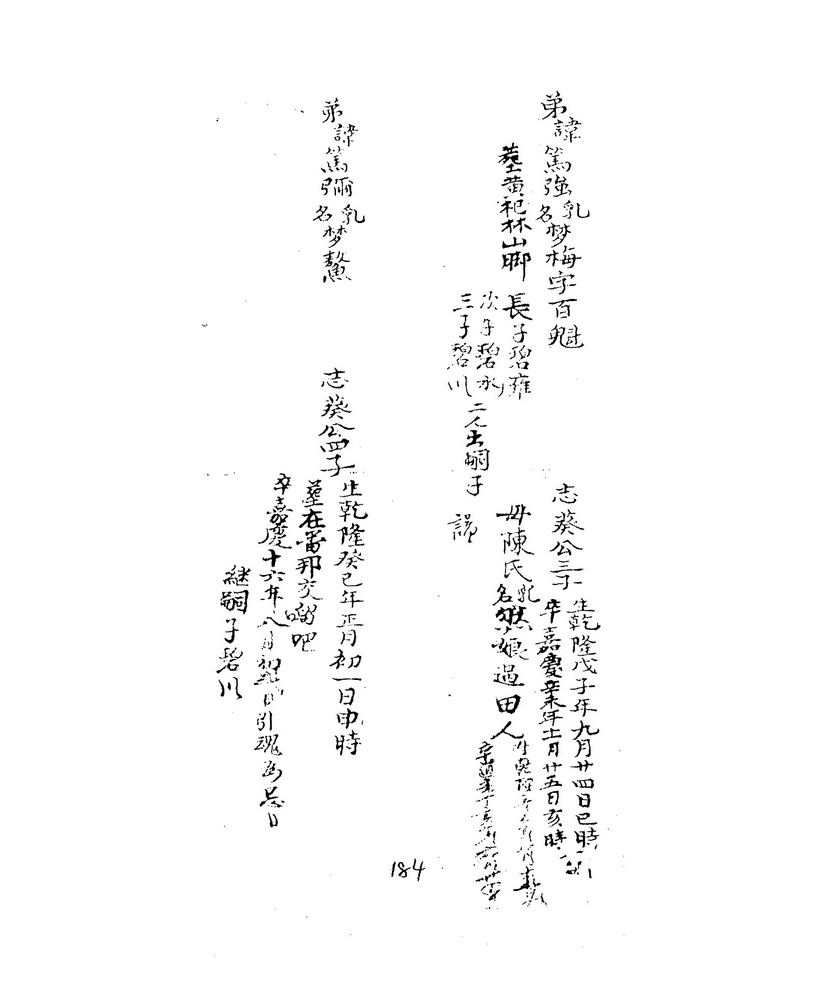 弟諱篤強乳名梦梅字百魁
塟黄祀林山脚
長子碧雍
次子碧水
三子碧川
二人出嗣子
志葵公三子
生乾隆戊子年九月廿四日巳時
卒嘉慶辛未年十一月廿五日亥時
毋陳氏乳名娘過田人
弟諱篤彌乳名梦鰲
志葵公四子
生乾隆癸巳年正月初一日申時
塟在畨邦交𠺕吧
卒嘉慶十六年八月初日引魂為忌日
継嗣子碧川
184